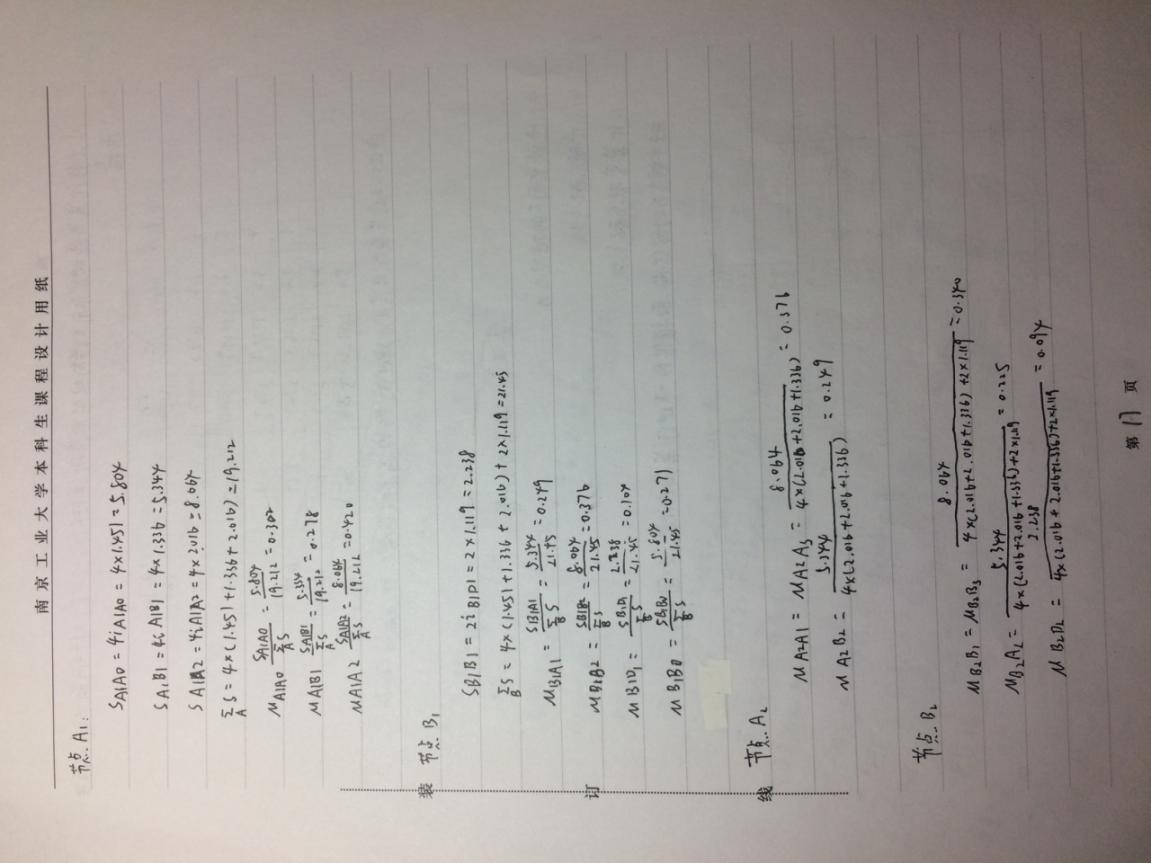 南京工业大学本科生课程设计用纸
节点A1:
SA1A0 = 4iA1A0 = 4×1.451 = 5.804
SA1B1 = 4iA1B1 = 4×1.336 = 5.344
SA1A2 = 4iA1A2 = 4×2.016 = 8.064
∑A S = 4×(1.451+1.336+2.016) = 19.212
μA1A0 = SA1A0/∑A S = 5.804/19.212 = 0.302
μA1B1 = SA1B1/∑A S = 5.344/19.212 = 0.278
μA1A2 = SA1A2/∑A S = 8.064/19.212 = 0.420
装 节点B1
SB1B1 = 2iB1D1 = 2×1.119 = 2.238
∑B S = 4×(1.451+1.336+2.016)+2×1.119 = 21.45
μB1A1 = SB1A1/∑B S = 5.344/21.45 = 0.249
订 μB1B2 = SB1B2/∑B S = 8.064/21.45 = 0.376
μB1D1 = SB1D1/∑B S = 2.238/21.45 = 0.104
μB1B0 = SB1B0/∑B S = 5.804/21.45 = 0.271
线 节点A2
μA2A1 = μA2A3 = 8.064/4×(2.016+2.016+1.336) = 0.376
μA2B2 = 5.344/4×(2.016+2.016+1.336) = 0.249
节点B2
μB2B1 = μB2B3 = 8.064/4×(2.016+2.016+1.336)+2×1.119 = 0.340
μB2A2 = 5.344/4×(2.016+2.016+1.336)+2×1.119 = 0.225
μB2D2 = 2.238/4×(2.016+2.016+1.336)+2×1.119 = 0.094
第 17 页